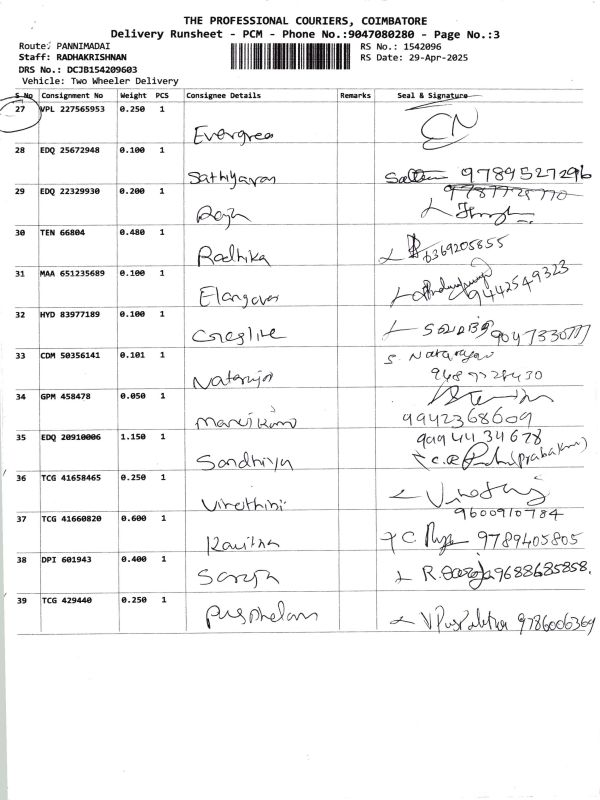 THE PROFESSIONAL COURIERS, COIMBATORE
Delivery Runsheet - PCM - Phone No.:9047080280 - Page No.:3
Route: PANNIMADAI
RS No.: 1542096
Staff: RADHAKRISHNAN
RS Date: 29-Apr-2025
DRS No.: DCJB154209603
Vehicle: Two Wheeler Delivery
S No Consignment No Weight PCS Consignee Details Remarks Seal & Signature
27 VPL 227565953 0.250 1 Evergreen CN
28 EDQ 25672948 0.100 1 Sathiyavan 9789527296
29 EDQ 22329930 0.200 1 Raja
30 TEN 66804 0.480 1 Radhika 6369205855
31 MAA 651235689 0.100 1 Elangovan 9442549323
32 HYD 83977189 0.100 1 9047330777
33 CDM 50356141 0.101 1 Natarajan S. Natarajan
9489728430
34 GPM 458478 0.050 1 9942368609
35 EDQ 20910006 1.150 1 Sandhiya 9994434678
(Prabakaran)
36 TCG 41658465 0.250 1
9600910784
37 TCG 41660820 0.600 1 Kavitha 9789405805
38 DPI 601943 0.400 1 Saroja R. Saroja 9688685858.
39 TCG 429440 0.250 1 9786006369